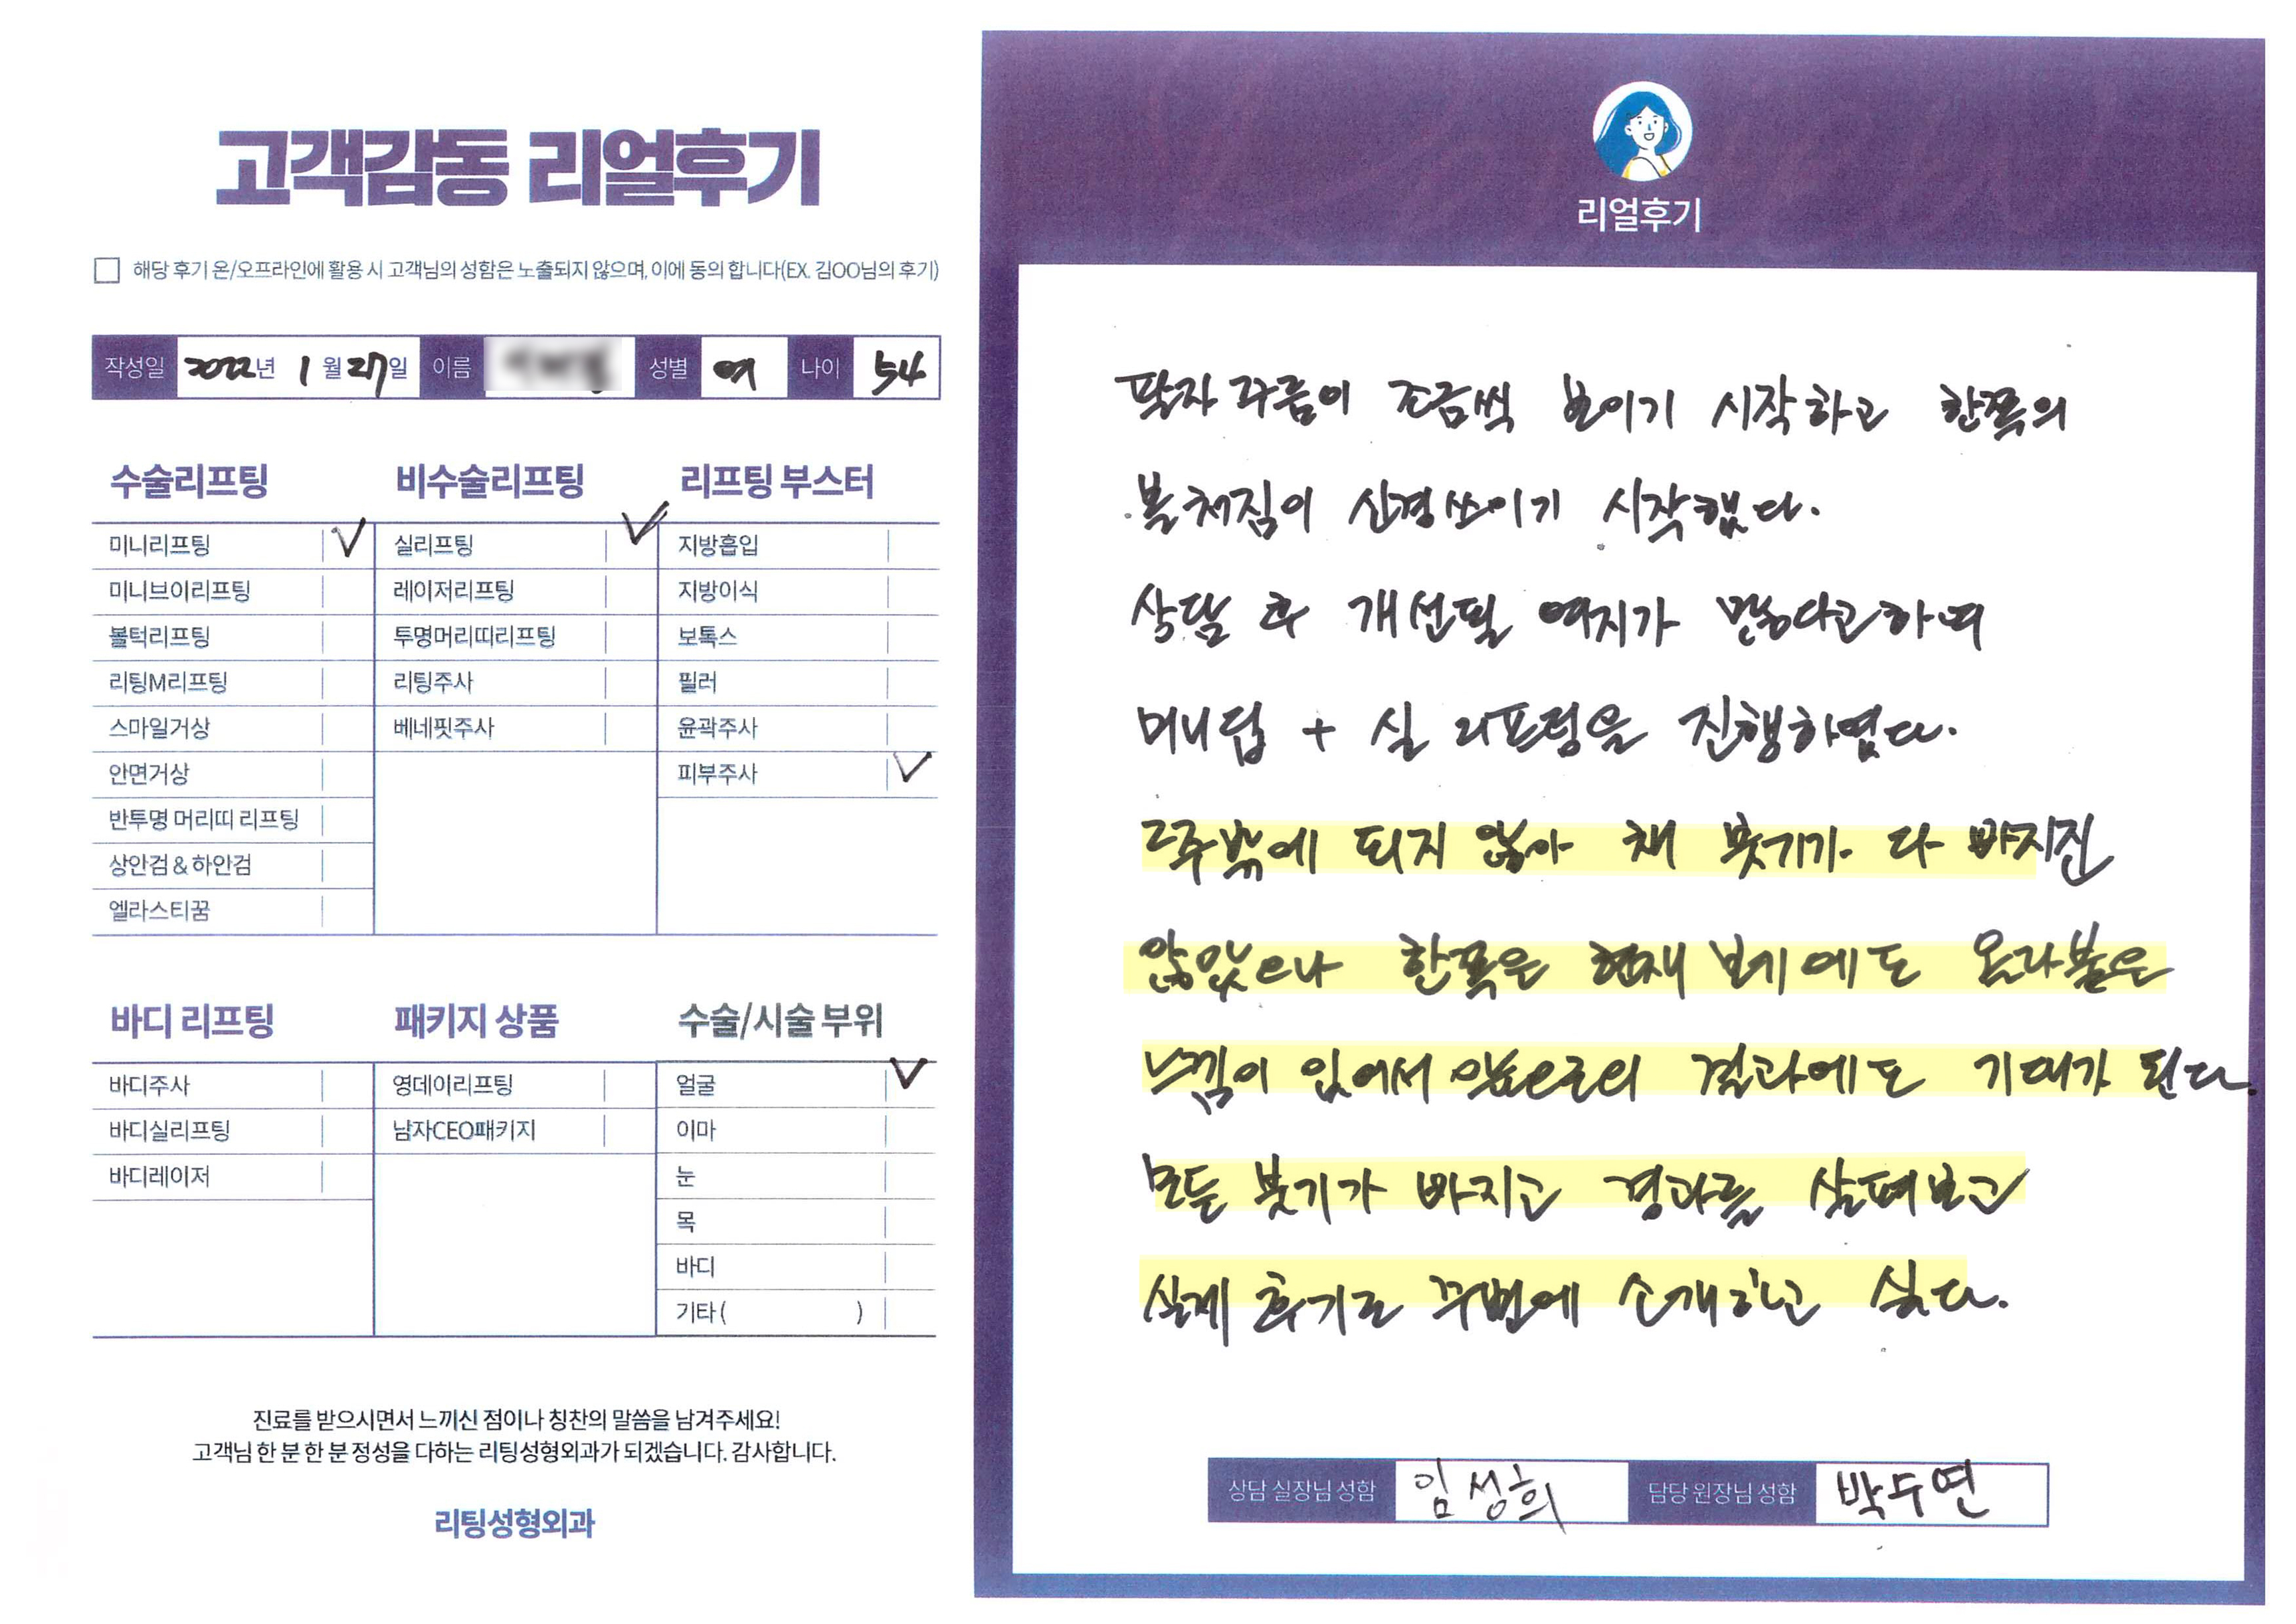 고객감동 리얼후기
해당 후기 온/오프라인에 활용 시 고객님의 성함은 노출되지 않으며, 이에 동의 합니다(EX. 김OO님의 후기)
작성일 2022년 1월 27일 이름 성별 여 나이 54
수술리프팅
미니리프팅
미니브이리프팅
볼턱리프팅
리팅M리프팅
스마일거상
안면거상
반투명 머리띠 리프팅
상안검 & 하안검
엘라스티꿈
비수술리프팅
실리프팅
레이저리프팅
투명머리띠리프팅
리팅주사
베네핏주사
리프팅 부스터
지방흡입
지방이식
보톡스
필러
윤곽주사
피부주사
바디 리프팅
바디주사
바디실리프팅
바디레이저
패키지 상품
영데이리프팅
남자CEO패키지
수술/시술 부위
얼굴
이마
눈
목
바디
기타( )
진료를 받으시면서 느끼신 점이나 칭찬의 말씀을 남겨주세요!
고객님 한 분 한 분 정성을 다하는 리팅성형외과가 되겠습니다. 감사합니다.
리팅성형외과
리얼후기
팔자 주름이 조금씩 보이기 시작하고 한쪽의
볼 처짐이 신경쓰이기 시작했다.
상담 후 개선될 여지가 많다고하여
미니팁 + 실 리프팅을 진행하였다.
2주밖에 되지 않아 채 붓기가 다 빠지진
않았으나 한쪽은 현재 보기에도 올라붙은
느낌이 있어서 앞으로의 결과에도 기대가 된다.
모든 붓기가 빠지고 경과를 살펴보고
실제 후기로 주변에 소개하고 싶다.
상담 실장님 성함 임성희 담당 원장님 성함 박두연